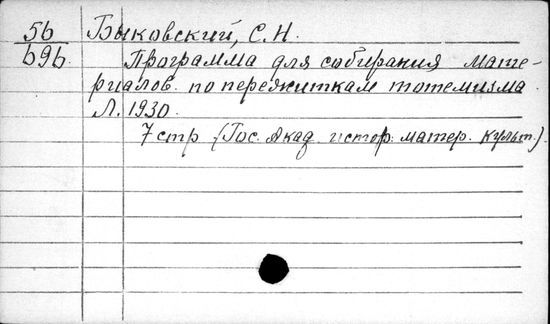 56 Быковский, С.Н.
б9б Программа для собирания мате-
риалов по пережиткам тотемизма.
Л. 1930.
7 стр. (Гос. Акад. истор. матер. культ.).